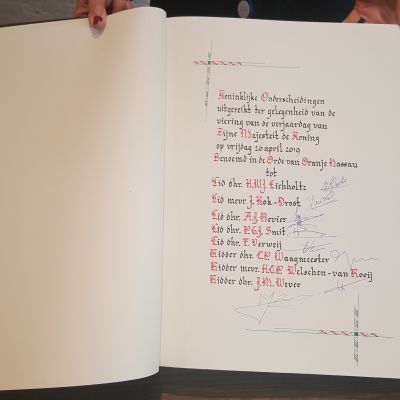 Koninklijke Onderscheidingen
uitgereikt ter gelegenheid van de
viering van de verjaardag van
Zijne Majesteit de Koning
op vrijdag 26 april 2019
Benoemd in de Orde van Oranje Nassau
tot
Lid dhr. H.W.J. Eichholtz
Lid mevr. J. Kok-Drost
Lid dhr. A.J. Hevier
Lid dhr. P.G.J. Smit
Lid dhr. F. Verweij
Ridder dhr. C.P. Waagmeester
Ridder mevr. H.C.E. Welschen-van Rooij
Ridder dhr. J.M. Wever